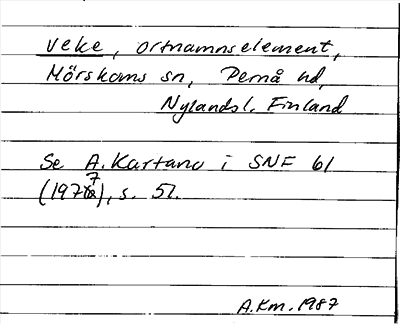 veke, ortnamnselement,
Mörskoms sn, Pernå hd,
Nylandsl. Finland
Se A. Kartano i SNF 61
(1977), s. 51.
A.Km. 1987